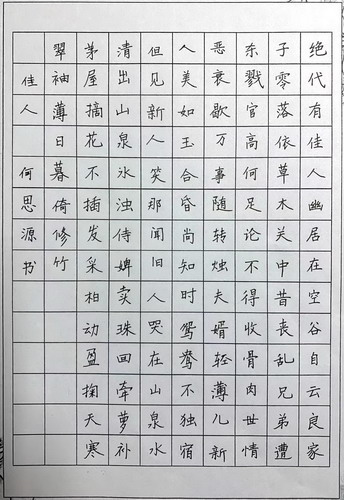 绝代有佳人幽居在空谷自云良家
子零落依草木关中昔丧乱兄弟遭
杀戮官高何足论不得收骨肉世情
恶衰歇万事随转烛夫婿轻薄儿新
人美如玉合昏尚知时鸳鸯不独宿
但见新人笑那闻旧人哭在山泉水
清出山泉水浊侍婢卖珠回牵萝补
茅屋摘花不插发采柏动盈掬天寒
翠袖薄日暮倚修竹
佳人 何思源书